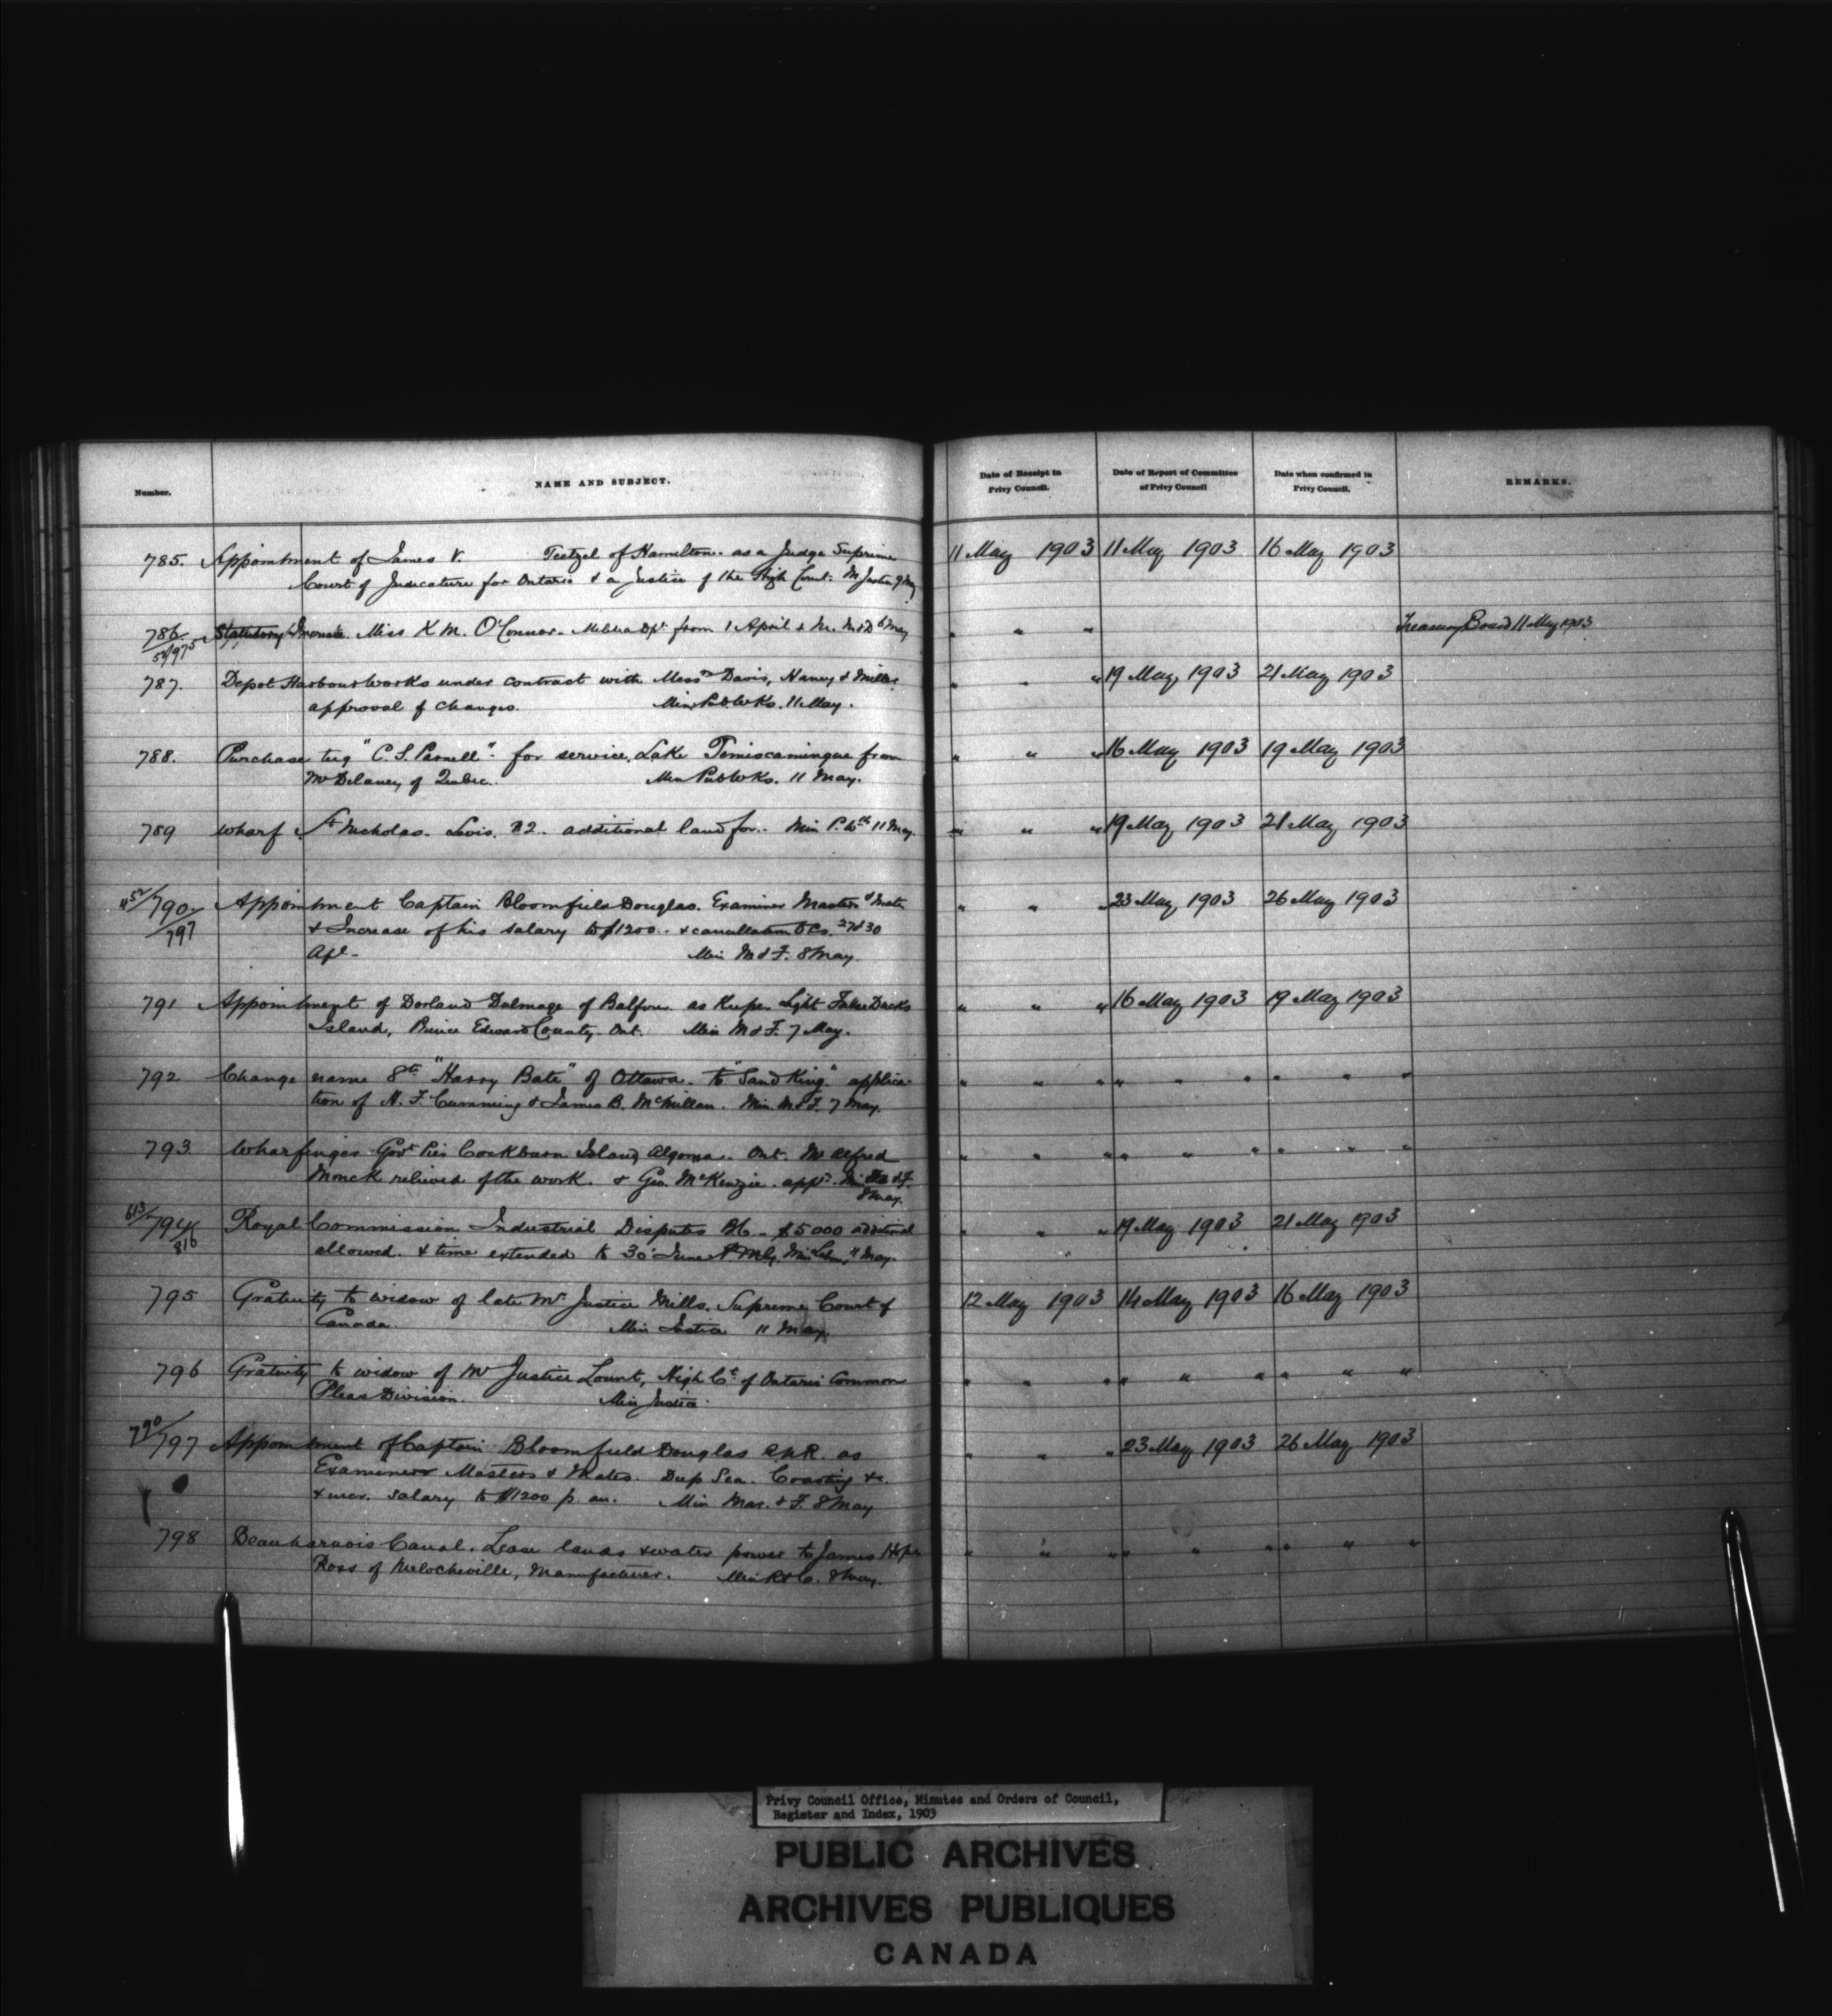 Number.
NAME AND SUBJECT.
Date of Receipt in
Privy Council.
Date of Report of Committee
of Privy Council
Date when confirmed in
Privy Council.
REMARKS.
785. Appointment of James V. Teetzel of Hamilton. as a Judge Supreme 11 May 1903 11 May 1903 16 May 1903
Court of Judicature for Ontario & a Justice of the High Court. M Justice 9 May
786. Statutory Increase. Miss K M. O'Connor. Militia Dpt. from 1 April M. M&D 6 May " " " Treasury Board 11 May 1903
787. Depot Harbour works under contract with Messrs Davis, Haney & Miller " " " 19 May, 1903 21 May 1903
approval of changes. Min Pub Wks. 11 May.
788. Purchase tug "C. S. Parnell" for service, Lake Temiscamingue from " " " 16 May 1903 19 May 1903
Mr Delaney of Quebec. Min Pub Wks. 11 May.
789 Wharf St Nicholas. Levis. additional land for. Min P. Wks 11 May. " " " 19 May 1903 21 May 1903
790 Appointment Captain Bloomfield Douglas. Examiner Masters & Mates " " " 23 May 1903 26 May 1903
797 & Increase of his salary to $1200. & cancellation O Cs. 27 & 30
Apl. Min M & F. 8 May.
791 Appointment of Dorland Dulmage of Balfour as Keeper Light False Ducks " " " 16 May 1903 19 May 1903
Island, Prince Edward County. Ont. Min M & F. 7 May.
792 Change name Str "Harry Bate" of Ottawa. to "Sand King." applica- " " " " " " " " "
tion of H. F. Cumming & James B. McMillan. Min M & F. 7 May.
793 Wharfinger Govt Pier Cockburn Island, Algoma. Ont. Mr Alfred " " " " " " " " "
Monck relieved of the work. & Geo. McKenzie. appt.
8 May.
613/794 Royal Commission Industrial Disputes BC. $5000 additional " " " 19 May 1903 21 May 1903
816 allowed. & time extended to 30 June 11 May.
795 Gratuity to widow of late Mr Justice Mills. Supreme Court of 12 May 1903 14 May 1903 16 May 1903
Canada. Min Justice 11 May
796 Gratuity to widow of Mr Justice Lount, High Ct of Ontario Common " " " " " " " " "
Pleas Division. Min Justice.
790/797 Appointment of Captain Bloomfield Douglas R.N.R. as " " " 23 May 1903 26 May 1903
Examiner Masters & Mates. Deep Sea. Coasting &c.
& incr. salary to $1200 p. an. Min Mar. & F. 8 May
798 Beauharnois Canal. Lease lands & water power to James Hope " " " " " " " " "
Ross of Melocheville, Manufacturer. Min R & C. 8 May.
Privy Council Office, Minutes and Orders of Council,
Register and Index, 1903
PUBLIC ARCHIVES
ARCHIVES PUBLIQUES
CANADA